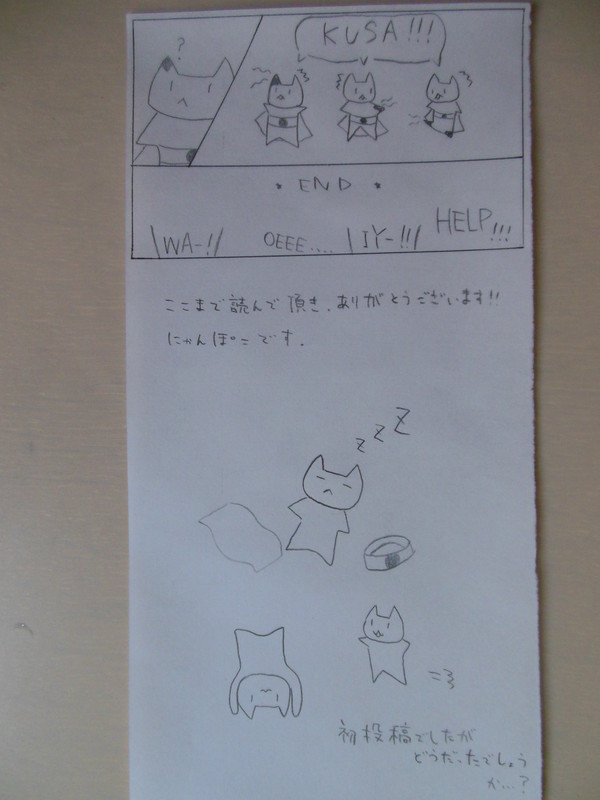 ?
KUSA!!!
* END *
\WA-!/ OEEE.... \IY-!!/ HELP!!!
ここまで読んで頂き、ありがとうございます!!
にゃんぽこです.
z z Z
初投稿でしたが
どうだったでしょう
か…?